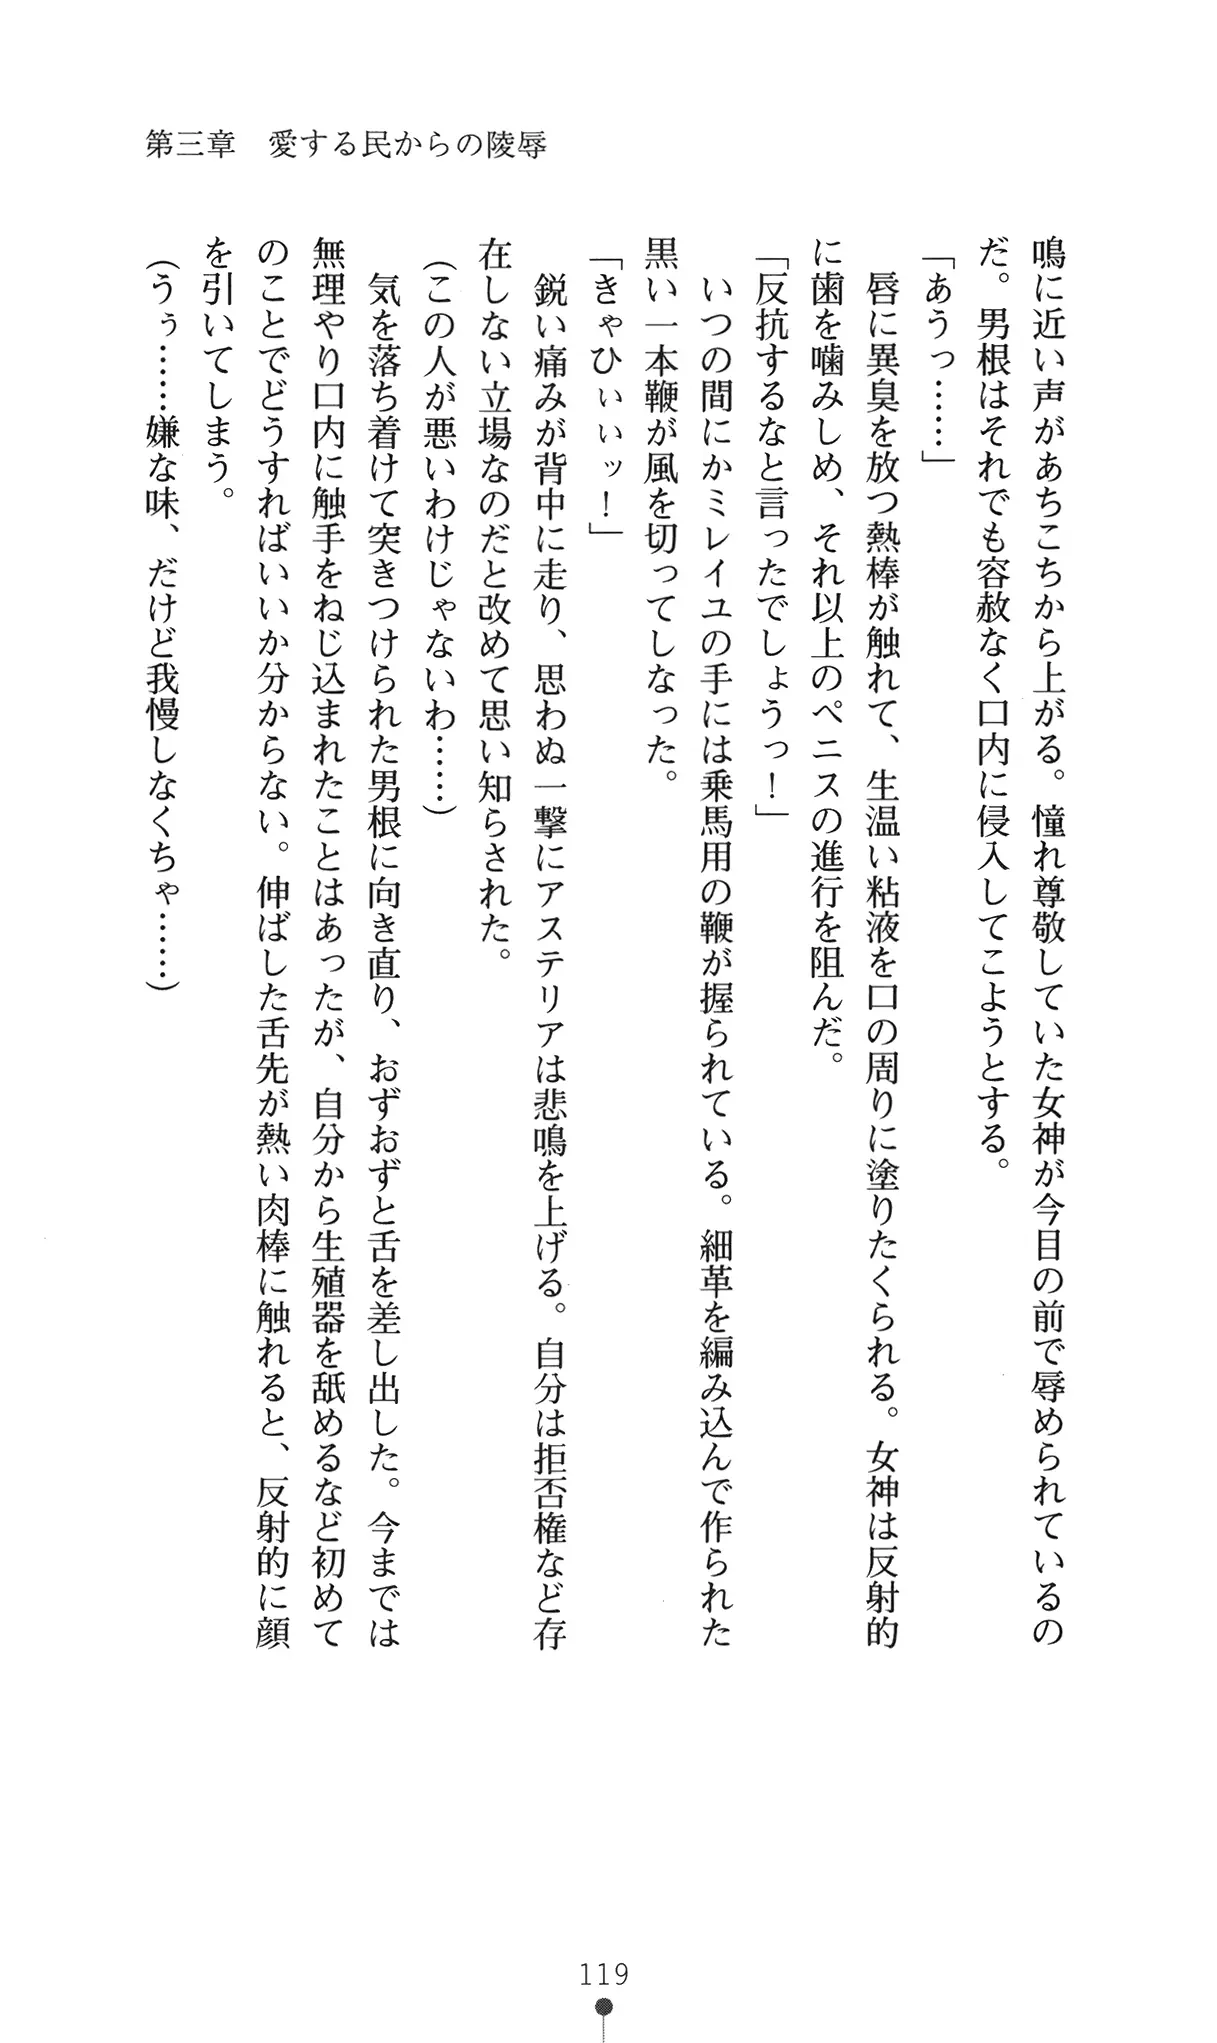 第三章　愛する民からの陵辱
鳴に近い声があちこちから上がる。憧れ尊敬していた女神が今目の前で辱められているの
だ。男根はそれでも容赦なく口内に侵入してこようとする。
「あうっ……」
　唇に異臭を放つ熱棒が触れて、生温い粘液を口の周りに塗りたくられる。女神は反射的
に歯を噛みしめ、それ以上のペニスの進行を阻んだ。
「反抗するなと言ったでしょうっ！」
　いつの間にかミレイユの手には乗馬用の鞭が握られている。細革を編み込んで作られた
黒い一本鞭が風を切ってしなった。
「きゃひぃぃッ！」
　鋭い痛みが背中に走り、思わぬ一撃にアステリアは悲鳴を上げる。自分は拒否権など存
在しない立場なのだと改めて思い知らされた。
（この人が悪いわけじゃないわ……）
　気を落ち着けて突きつけられた男根に向き直り、おずおずと舌を差し出した。今までは
無理やり口内に触手をねじ込まれたことはあったが、自分から生殖器を舐めるなど初めて
のことでどうすればいいか分からない。伸ばした舌先が熱い肉棒に触れると、反射的に顔
を引いてしまう。
（うぅ……嫌な味、だけど我慢しなくちゃ……）
119